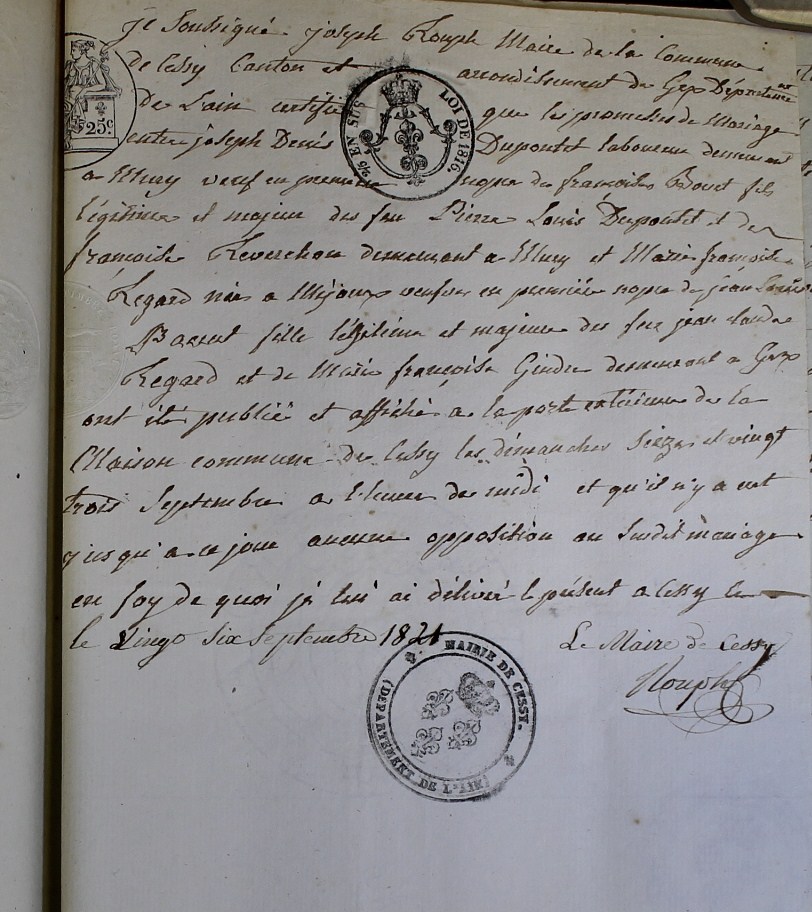 je soussigné joseph Rouph Maire de la Commune
de Cessy Canton et arrondissement de Gex Département
de Lain certifie que les promesses de Mariage
entre joseph Denis Dupontet laboureur demeurant
a veuf en premiere nopce de françoise Bouet fils
légitime et majeur des feu Pierre Louis Dupontet et de
françoise Reverchon demeurant a et Marie françoise
Regard née a Mijoux veufve en premiere nopce de jean Louis
fille légitime et majeure des feu jean claude
Regard et de Marie françoise Gindre demeurant a Gex
ont été publié et affiché a la porte extérieure de la
Maison commune de Cessy les démanches Seize et vingt
trois Septembre a l'heure de midi et qu'il n'y a eut
jusqu'a ce jour aucune opposition au Susdit mariage
en foy de quoi je lui ai délivré le présent a Cessy le
le Vingt Six Septembre 1821
Le Maire de Cessy
Rouph
25c
LOI DE 1816.
EN SUS
MAIRIE DE CESSY.
(DEPARTEMENT DE L'AIN)